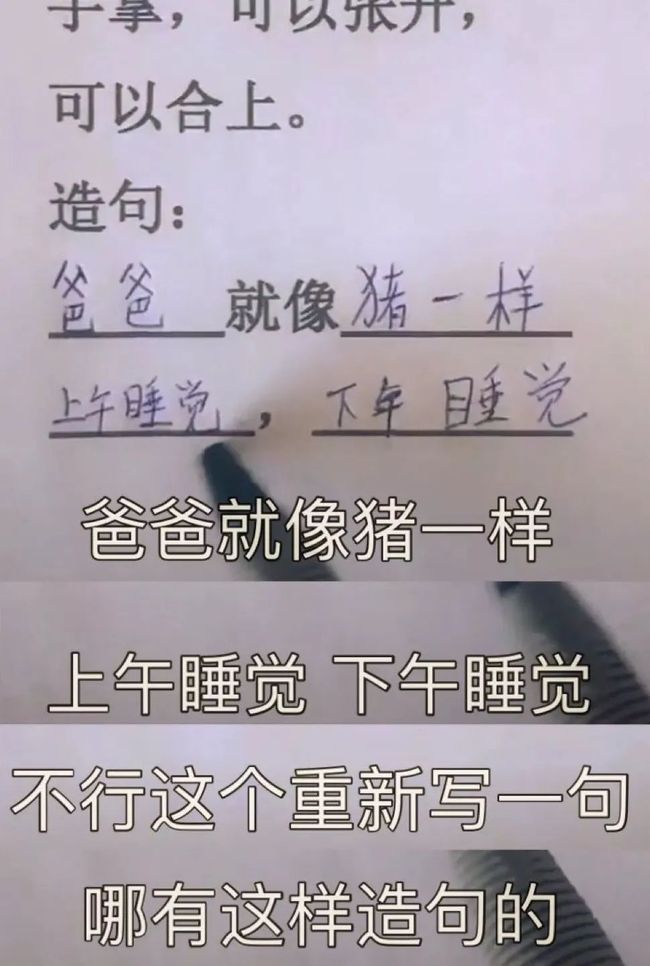 手拿，可以张开，
可以合上。
造句：
爸爸就像猪一样
上午睡觉，下午睡觉
爸爸就像猪一样
上午睡觉 下午睡觉
不行这个重新写一句
哪有这样造句的